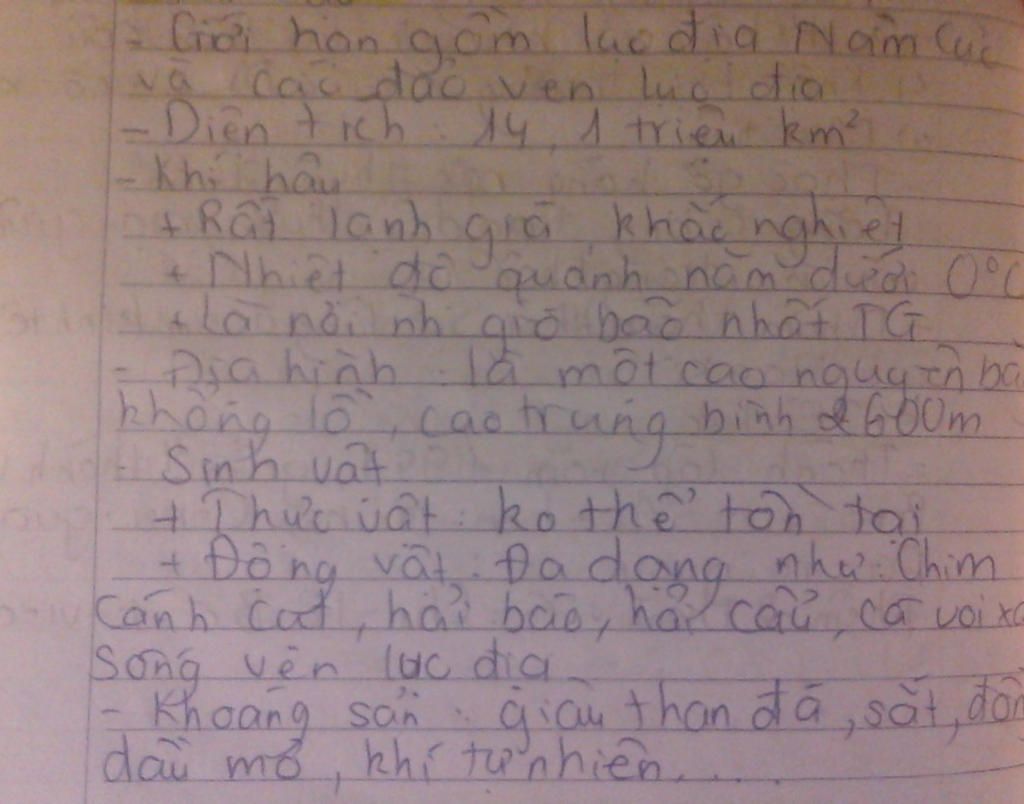 - Giới hạn gồm lục địa Nam Cực
và các đảo ven lục địa
- Diện tích : 14,1 triệu km²
- Khí hậu
+ Rất lạnh giá, khắc nghiệt
+ Nhiệt độ quanh năm dưới 0°C
+ Là nơi nh gió bão nhất TG
- Địa hình : là một cao nguyên bă
khổng lồ, cao trung bình 2600m
- Sinh vật
+ Thực vật : ko thể tồn tại
+ Động vật : Đa dạng như : Chim
Cánh cụt, hải báo, hải cẩu, cá voi xa
Sống ven lục địa
- Khoáng sản : giàu than đá, sắt, đồn
dầu mỏ, khí tự nhiên.....